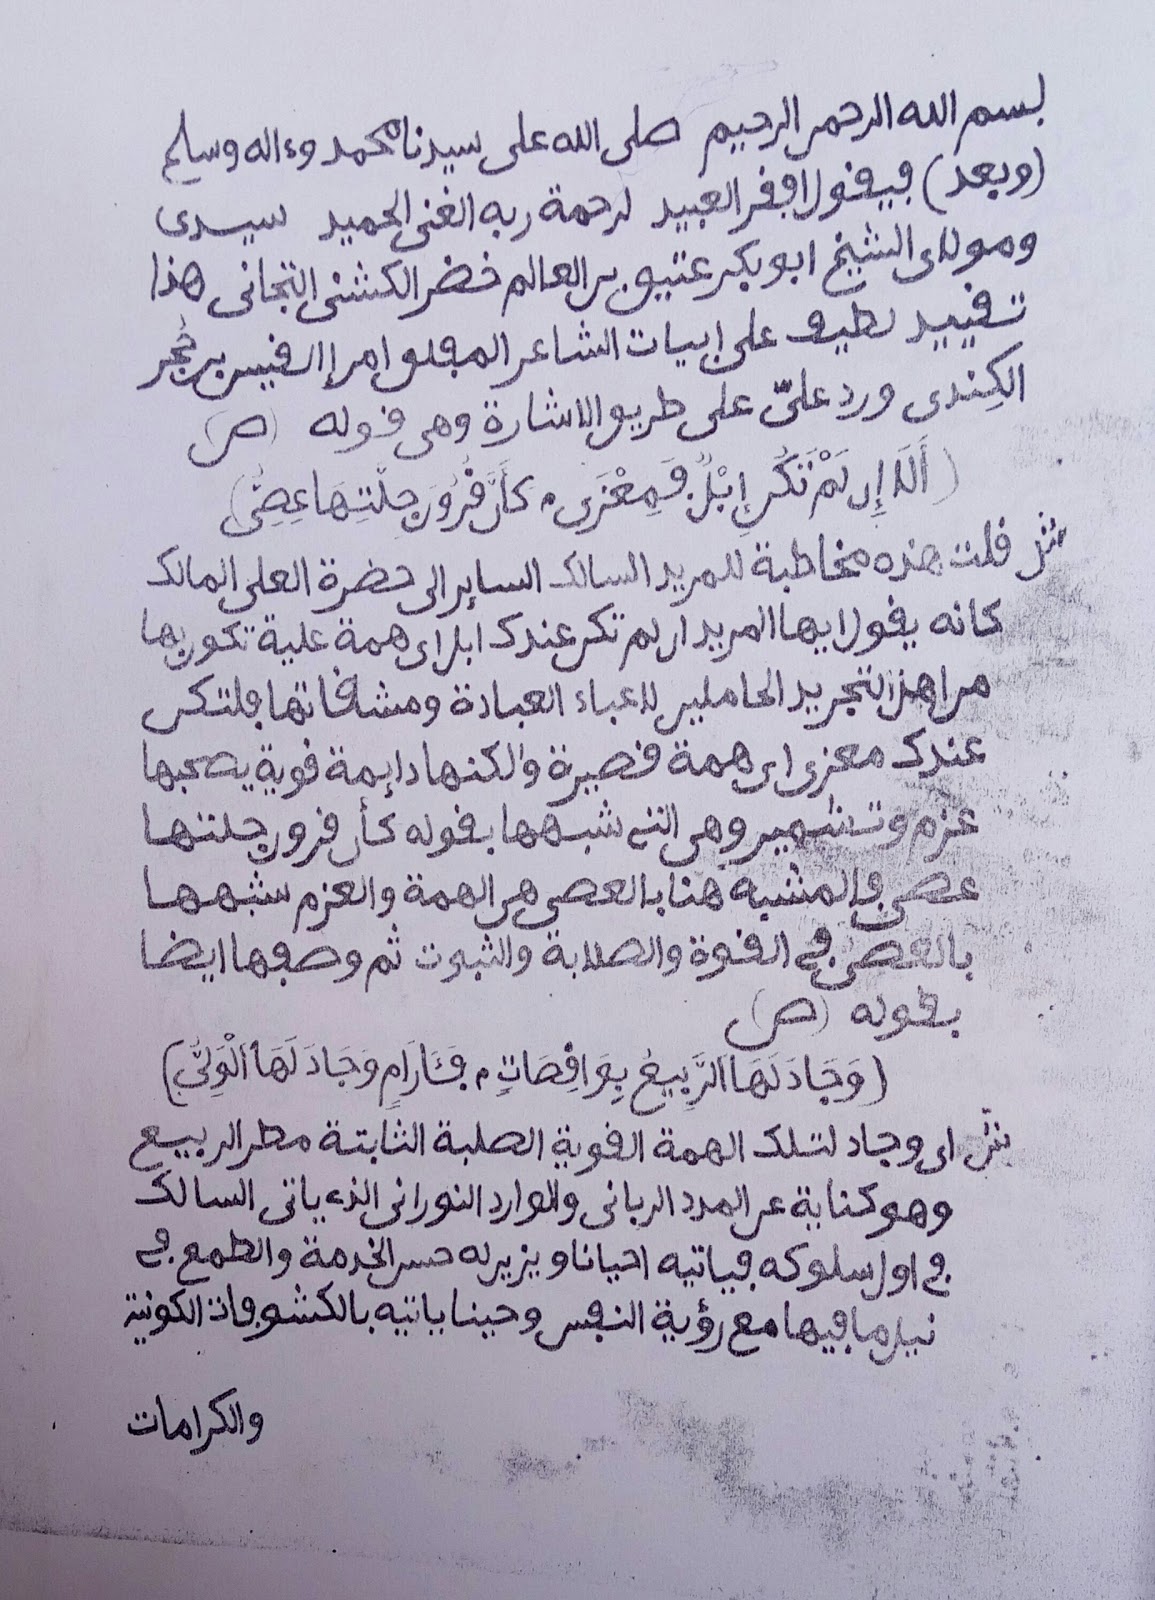 بسم الله الرحمن الرحيم صلى الله على سيدنا محمد وءاله وسلم
(وبعد) فيقول افقر العبيد لرحمة ربه الغنى الحميد سيدى
ومولاى الشيخ ابوبكر عتيق بن العالم خضر الكشنى التجانى هذا
تقييد لطيف على ابيات الشاعر المفلق امرإ القيس بن حُجر
الكِندى ورد علىّ على طريق الاشارة وهى قوله (ص)
(أَلَا إِن لَمْ تَكُن إِبْلٌ فَمِعْزَى • كَأَنَّ قُرُونَ جِلَّتِهَا عِصِىُّ)
ش قلت هذه مخاطبة للمريد السالك الساير الى حضرة العلى المالك
كانه يقول ايها المريد ان لم تكن عندك ابل اى همة علية تكون بها
من اهل التجريد الحاملين لاعباء العبادة ومشقاتها فلتكن
عندك معزى اى همة قصيرة ولكنها دايمة قوية يصحبها
عزم وتشمير وهى التى شبهها بقوله كأن قرون جلتها
عصى والمشبه هنا بالعصى هى الهمة والعزم شبهها
بالعصى فى القوة والصلابة والثبوت ثم وصفها ايضا
بقوله (ص)
(وَجَادَ لَهَا الرَّبِيعُ بِوَاقِصَاتٍ • فَـَٔارَامٍ وَجَادَ لَهَا الْوَلِىُّ)
ش اى وجاد لتلك الهمة القوية الصلبة الثابتة مطر الربيع
وهو كناية عن المدد الربانى والوارد النورانى الذى ياتى السالك
فى اول سلوكه فياتيه احيانا ويزيد له حسن الخدمة والطمع فى
نيل ما فيها مع رؤية النفس وحينا ياتيه بالكشوفات الكونية
والكرامات